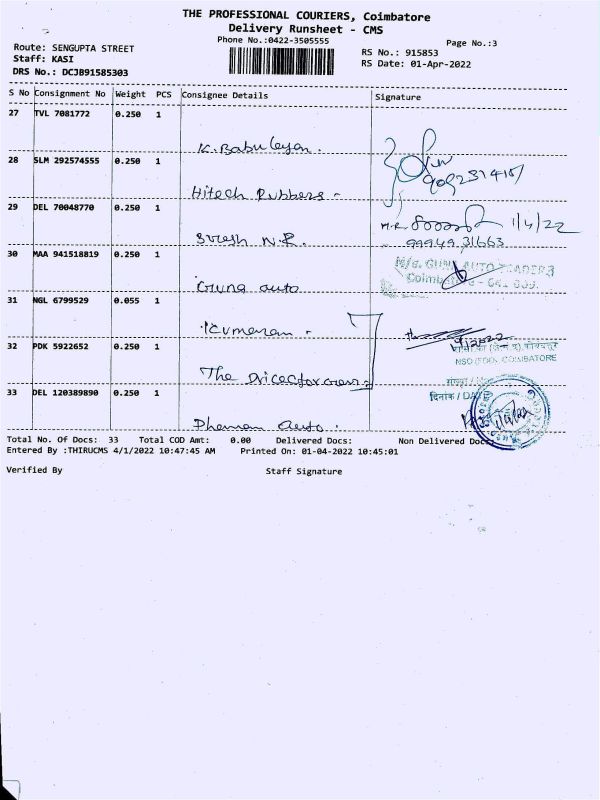 THE PROFESSIONAL COURIERS, Coimbatore
Delivery Runsheet - CMS
Phone No.:0422-3505555
Page No.:3
Route: SENGUPTA STREET
Staff: KASI
DRS No.: DCJB91585303
RS No.: 915853
RS Date: 01-Apr-2022
S No Consignment No Weight PCS Consignee Details Signature
27 TVL 7081772 0.250 1
K. Babu
28 SLM 292574555 0.250 1
Hitech Rubbers -
29 DEL 70048770 0.250 1
1/4/22
Suresh N.R.
99949 31663
30 MAA 941518819 0.250 1
M/s. GUNA AUTO TRADERS
Guna auto
31 NGL 6799529 0.055 1
Kumaran -
32 PDK 5922652 0.250 1
NSO COIMBATORE
The
दिनांक /
33 DEL 120389890 0.250 1
auto.
Total No. Of Docs: 33 Total COD Amt: 0.00 Delivered Docs: Non Delivered Docs:
Entered By :THIRUCMS 4/1/2022 10:47:45 AM Printed On: 01-04-2022 10:45:01
Verified By Staff Signature